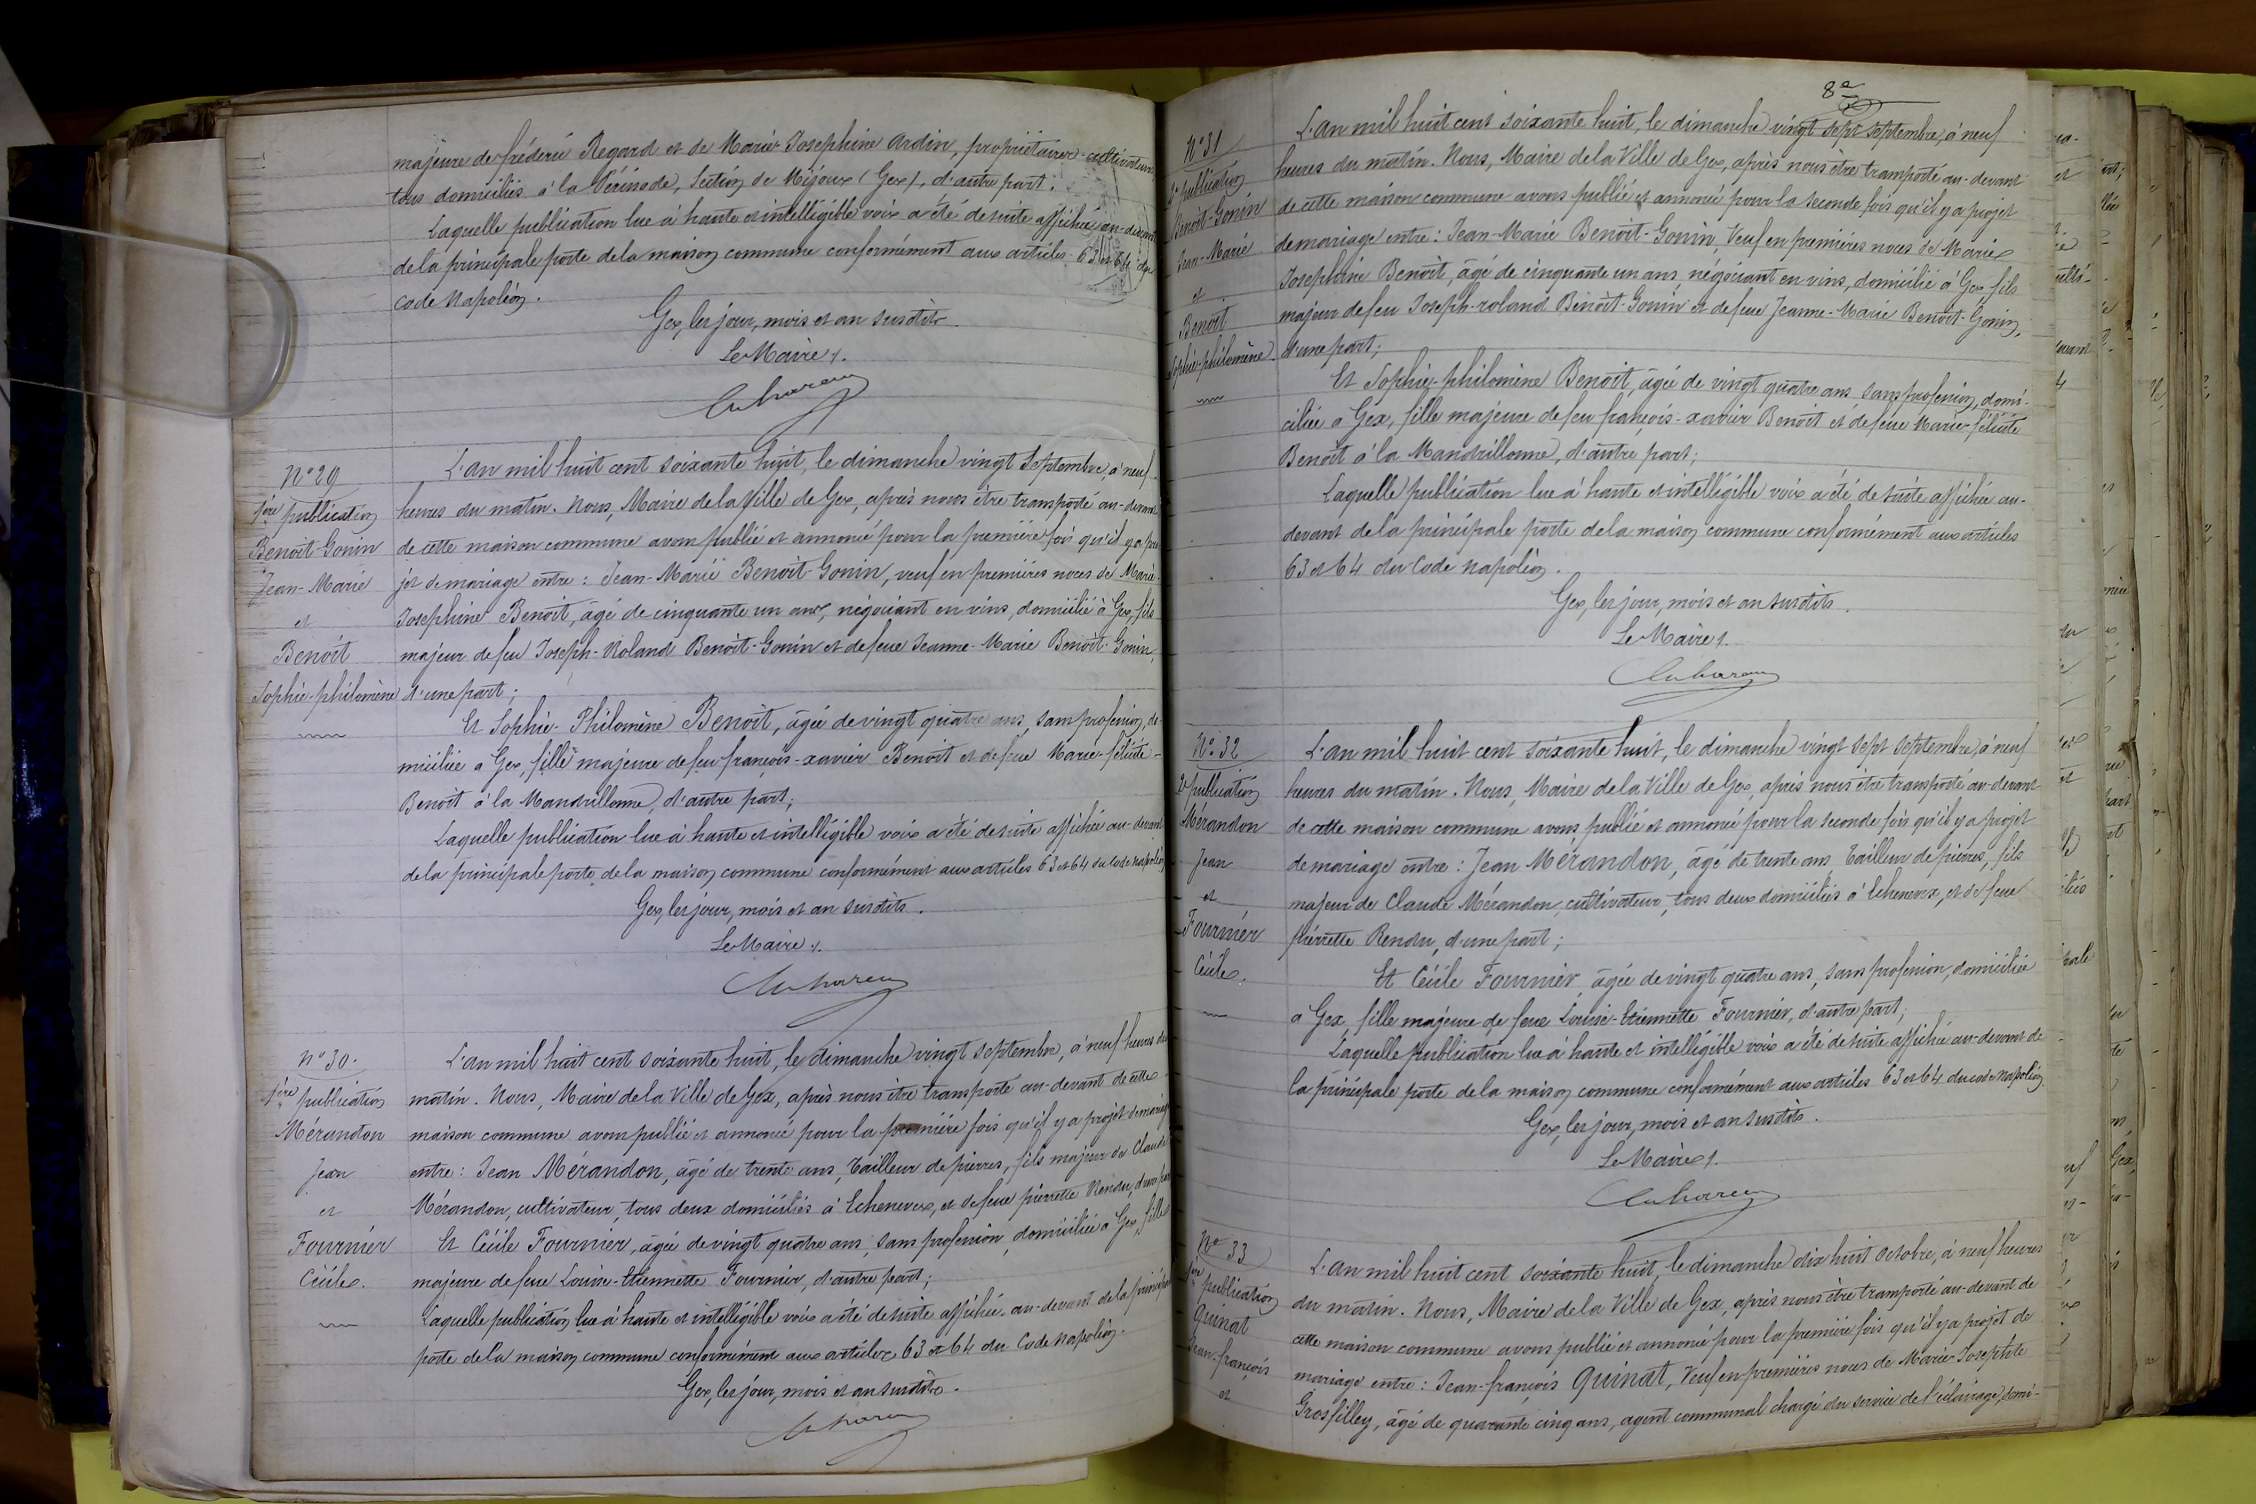 majeure de fréderic Regard et de Marie-Josephine Ardin, propriétaires-cultivateurs
tous domiciliés à la Vérinode, Section de Mijoux (Gex), d'autre part.
Laquelle publication lue à haute et intelligible voix a été de suite affichée au-devant
de la principale porte de la maison commune conformément aux articles 63 et 64 du
code Napoléon.
Gex, les jour, mois et an susdits.
Le Maire,
N° 29
1ère publication
Benoît-Gonin
Jean-Marie
et
Benoît
Sophie-philomène
L'an mil huit cent soixante huit, le dimanche vingt Septembre, à neuf
heures du matin. Nous, Maire de la Ville de Gex, après nous être transporté au-devant
de cette maison commune avons publié et annoncé pour la première fois qu'il y a pro
jet de mariage entre : Jean-Marie Benoît-Gonin, veuf en premières noces de Marie-
Josephine Benoît, âgé de cinquante un ans, négociant en vins, domicilié à Gex, fils
majeur de feu Joseph-Roland Benoît-Gonin et de feue Jeanne-Marie Benoît-Gonin,
d'une part ;
Et Sophie-Philomène Benoît, âgée de vingt quatre ans, sans profession, do-
miciliée à Gex, fille majeure de feu françois-xavier Benoît et de feue Marie-félicité-
Benoît à la Mandrillonne, d'autre part ;
Laquelle publication lue à haute et intelligible voix a été de suite affichée au-devant
de la principale porte de la maison commune conformément aux articles 63 et 64 du Code Napoléon,
Gex, les jour, mois et an susdits.
Le Maire,
n° 30.
1ère publication
Mérandon
Jean
et
Fournier
Cécile.
L'an mil huit cent soixante huit, le dimanche vingt septembre, à neuf heures du
matin. Nous, Maire de la Ville de Gex, après nous être transporté au-devant de cette
maison commune avons publié et annoncé pour la première fois qu'il y a projet de mariage
entre : Jean Mérandon, âgé de trente ans, Tailleur de pierres, fils majeur de Claude
Mérandon, cultivateur, tous deux domiciliés à Echenevex, et de feue pierrette Rendu, d'une part
Et Cécile Fournier, âgée de vingt quatre ans, sans profession, domiciliée à Gex, fille
majeure de feue Louise-Etiennette Fournier, d'autre part ;
Laquelle publication lue à haute et intelligible voix a été de suite affichée au-devant de la principale
porte de la maison commune conformément aux articles 63 et 64 du Code Napoléon.
Gex, les jour, mois et an susdits.
8e
N° 31
2e publication
Benoît-Gonin
Jean-Marie
et
Benoît
Sophie-philomène
L'an mil huit cent soixante huit, le dimanche vingt sept septembre, à neuf
heures du matin. Nous, Maire de la Ville de Gex, après nous être transporté au-devant
de cette maison commune avons publié et annoncé pour la seconde fois qu'il y a projet
de mariage entre : Jean-Marie Benoît-Gonin, Veuf en premières noces de Marie
Josephine Benoît, âgé de cinquante un ans, négociant en vins, domicilié à Gex, fils
majeur de feu Joseph-roland Benoît-Gonin et de feue Jeanne-Marie Benoît-Gonin,
d'une part ;
Et Sophie-philomène Benoît, âgée de vingt quatre ans sans profession, domi-
ciliée à Gex, fille majeure de feu françois-xavier Benoît et de feue Marie-félicité
Benoît à la Mandrillonne, d'autre part ;
Laquelle publication lue à haute et intelligible voix a été de suite affichée au-
devant de la principale porte de la maison commune conformément aux articles
63 et 64 du Code Napoléon.
Gex, les jour, mois et an susdits.
Le Maire,
N° 32
2e publication
Mérandon
Jean
et
Fournier
Cécile.
L'an mil huit cent soixante huit, le dimanche vingt sept septembre, à neuf
heures du matin. Nous, Maire de la Ville de Gex, après nous être transporté au-devant
de cette maison commune avons publié et annoncé pour la seconde fois qu'il y a projet
de mariage entre : Jean Mérandon, âgé de trente ans Tailleur de pierres, fils
majeur de Claude Mérandon, cultivateur, tous deux domiciliés à Echenevex, et de feue
pierrette Rendu, d'une part ;
Et Cécile Fournier âgée de vingt quatre ans, sans profession, domiciliée
à Gex, fille majeure de feue Louise-Etiennette Fournier, d'autre part ;
Laquelle publication lue à haute et intelligible voix a été de suite affichée au-devant de
la principale porte de la maison commune conformément aux articles 63 et 64 du code Napoléon
Gex, les jour, mois et an susdits.
Le Maire,
N° 33
1ère publication
Quinat
Jean-françois
et
L'an mil huit cent soixante huit, le dimanche dix huit octobre, à neuf heures
du matin. Nous, Maire de la Ville de Gex, après nous être transporté au-devant de
cette maison commune avons publié et annoncé pour la première fois qu'il y a projet de
mariage entre : Jean-françois Quinat, Veuf en premières noces de Marie-Josephte
Grosfilley, âgé de quarante cinq ans, agent communal chargé du service de l'éclairage, domi-